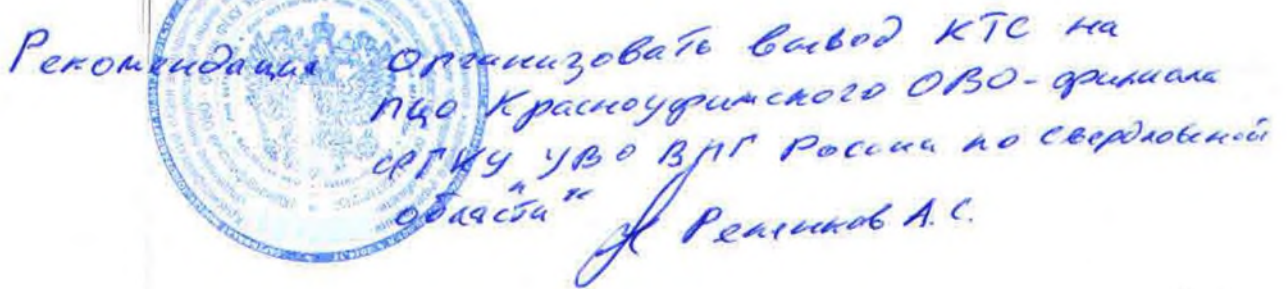 Рекомендация Организовать вывод КТС на
пцо Красноуфимского ОВО-филиала
ФГКУ УВО ВНГ России по Свердловской
области"
А.С.